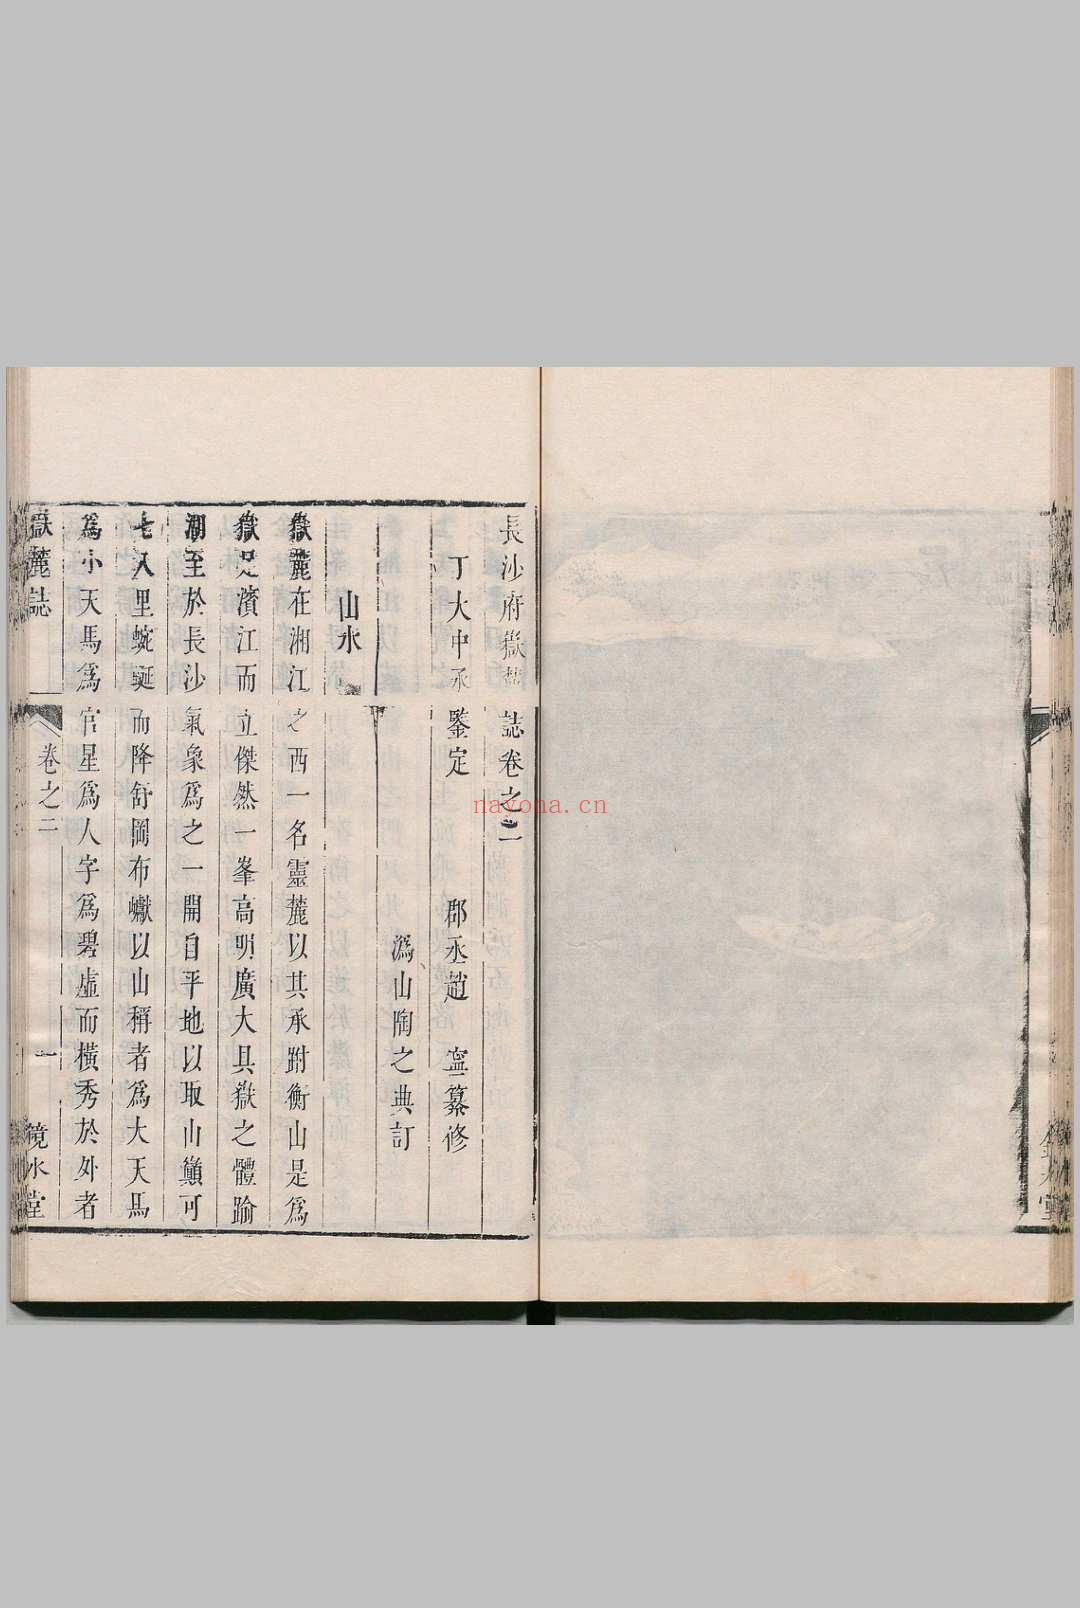 長沙府嶽麓誌卷之二
丁大中丞鑒定 郡丞趙寧纂修
潙山陶之典訂
山水
嶽麓在湘江之西一名靈麓以其承跗衡山是爲
嶽足濱江而立傑然一峯高明廣大具嶽之體踰
湖至於長沙氣象爲之一開自平地以取山巔可
七八里蜿蜒而降舒岡布巘以山稱者爲大天馬
爲小天馬爲官星爲人字爲碧虛而橫秀於外者
嶽麓誌 卷之二 一 鏡水堂
nayona.cn